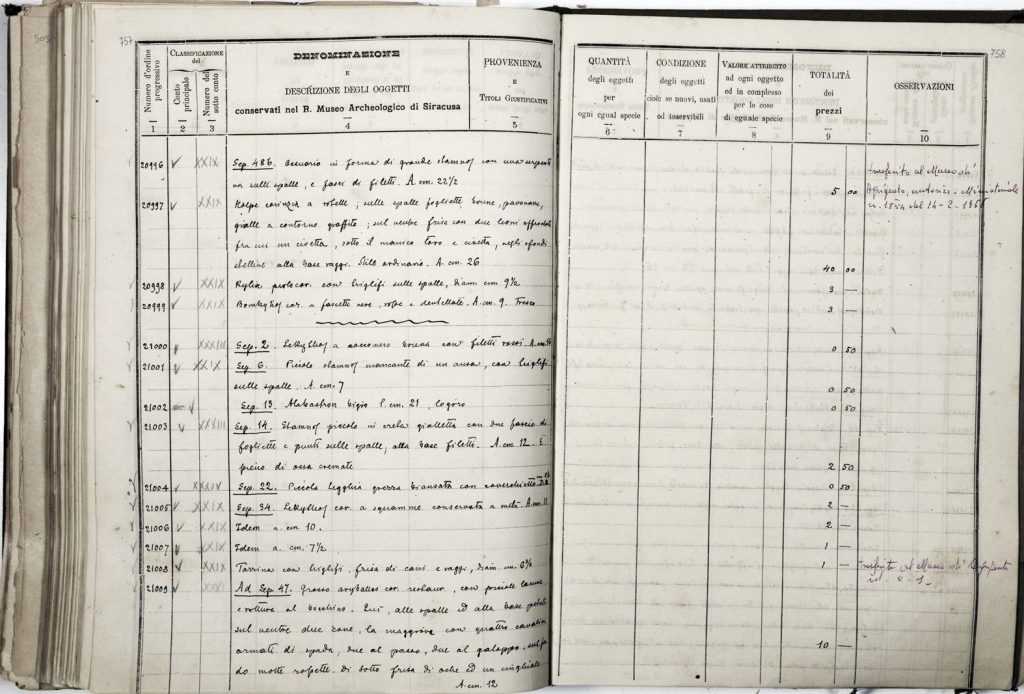 505
757
Numero d'ordine progressivo
1
CLASSIFICAZIONE
del
Conto principale
2
Numero del sotto conto
3
DENOMINAZIONE
E
DESCRIZIONE DEGLI OGGETTI
conservati nel R. Museo Archeologico di Siracusa
4
PROVENIENZA
E
TITOLI GIUSTIFICATIVI
5
20996 XXIX Sep. 486. Ossuario in forma di grande stamnos con una
sulle spalle, e fasci di filetti. A. cm. 22 1/2
20997 XXIX Kolpe corinzia a rotelle; sulle spalle fogliette brune, pavonazze,
gialle a contorno graffito; sul ventre frisa con due leoni affrontati
fra cui un civetta, sotto il manico toro e civetta, negli sfondi
stelline alla base raggi. Stile ordinario. A. cm. 26
20998 XXIX Kylix protocor. con triglifi sulle spalle, diam. cm 9 1/2
20999 XXIX Bombylios cor. a fascette nere, rosse e dentellate. A. cm. 9. Fresco
21000 XXXIII Sep. 2. Lekythos a vernice bruna con filetti rossi. A. cm.
21001 XXIX Sep. 6. Piccolo stamnos mancante di un ansa, con triglifi
sulle spalle. A. cm. 7
21002 Sep. 13. Alabastron bigio l. cm. 21, logoro
21003 XXXIII Sep. 14. Stamnos piccolo in creta gialletta con due fascie di
fogliette e punti sulle spalle, alla base filetti. A. cm 12. E
pieno di ossa cremate
21004 XXXIV Sep. 22. Piccola grezza biansata con coverchietto
21005 XXIX Sep. 34. Lekythos cor. a squamme conservata a metà. A. cm. 11
21006 XXIX Idem a. cm. 10.
21007 XXIX Idem a. cm. 7 1/2
21008 XXIX Tazzina con triglifi, frisa di cani e raggi, diam. cm. 6 1/2
21009 Ad Sep. 47. Grosso aryballos cor. restaur. con piccole lacune
e rottura al bocchino. Qui, alle spalle ed alla base
sul ventre due zone, la maggiore con quattro cavalieri
armati di spada, due al passo, due al galoppo,
do molte rosette. di sotto frisa di oche ed un cinghiale
A. cm. 12
758
QUANTITÀ
degli oggetti
per
ogni egual specie
6
CONDIZIONE
degli oggetti
cioè: se nuovi, usati
od inservibili
7
VALORE ATTRIBUITO
ad ogni oggetto
ed in complesso
per le cose
di eguale specie
8
TOTALITÀ
dei
prezzi
9
OSSERVAZIONI
10
trasferito al Museo di
5 00 Agrigento, autoriz. Ministeriale
n. 1854 del 14-2-1966
40 00
3 —
3 —
0 50
0 50
0 50
2 50
0 50
2 —
2 —
1 —
1 — Trasferito al Museo di Agrigento
10 —